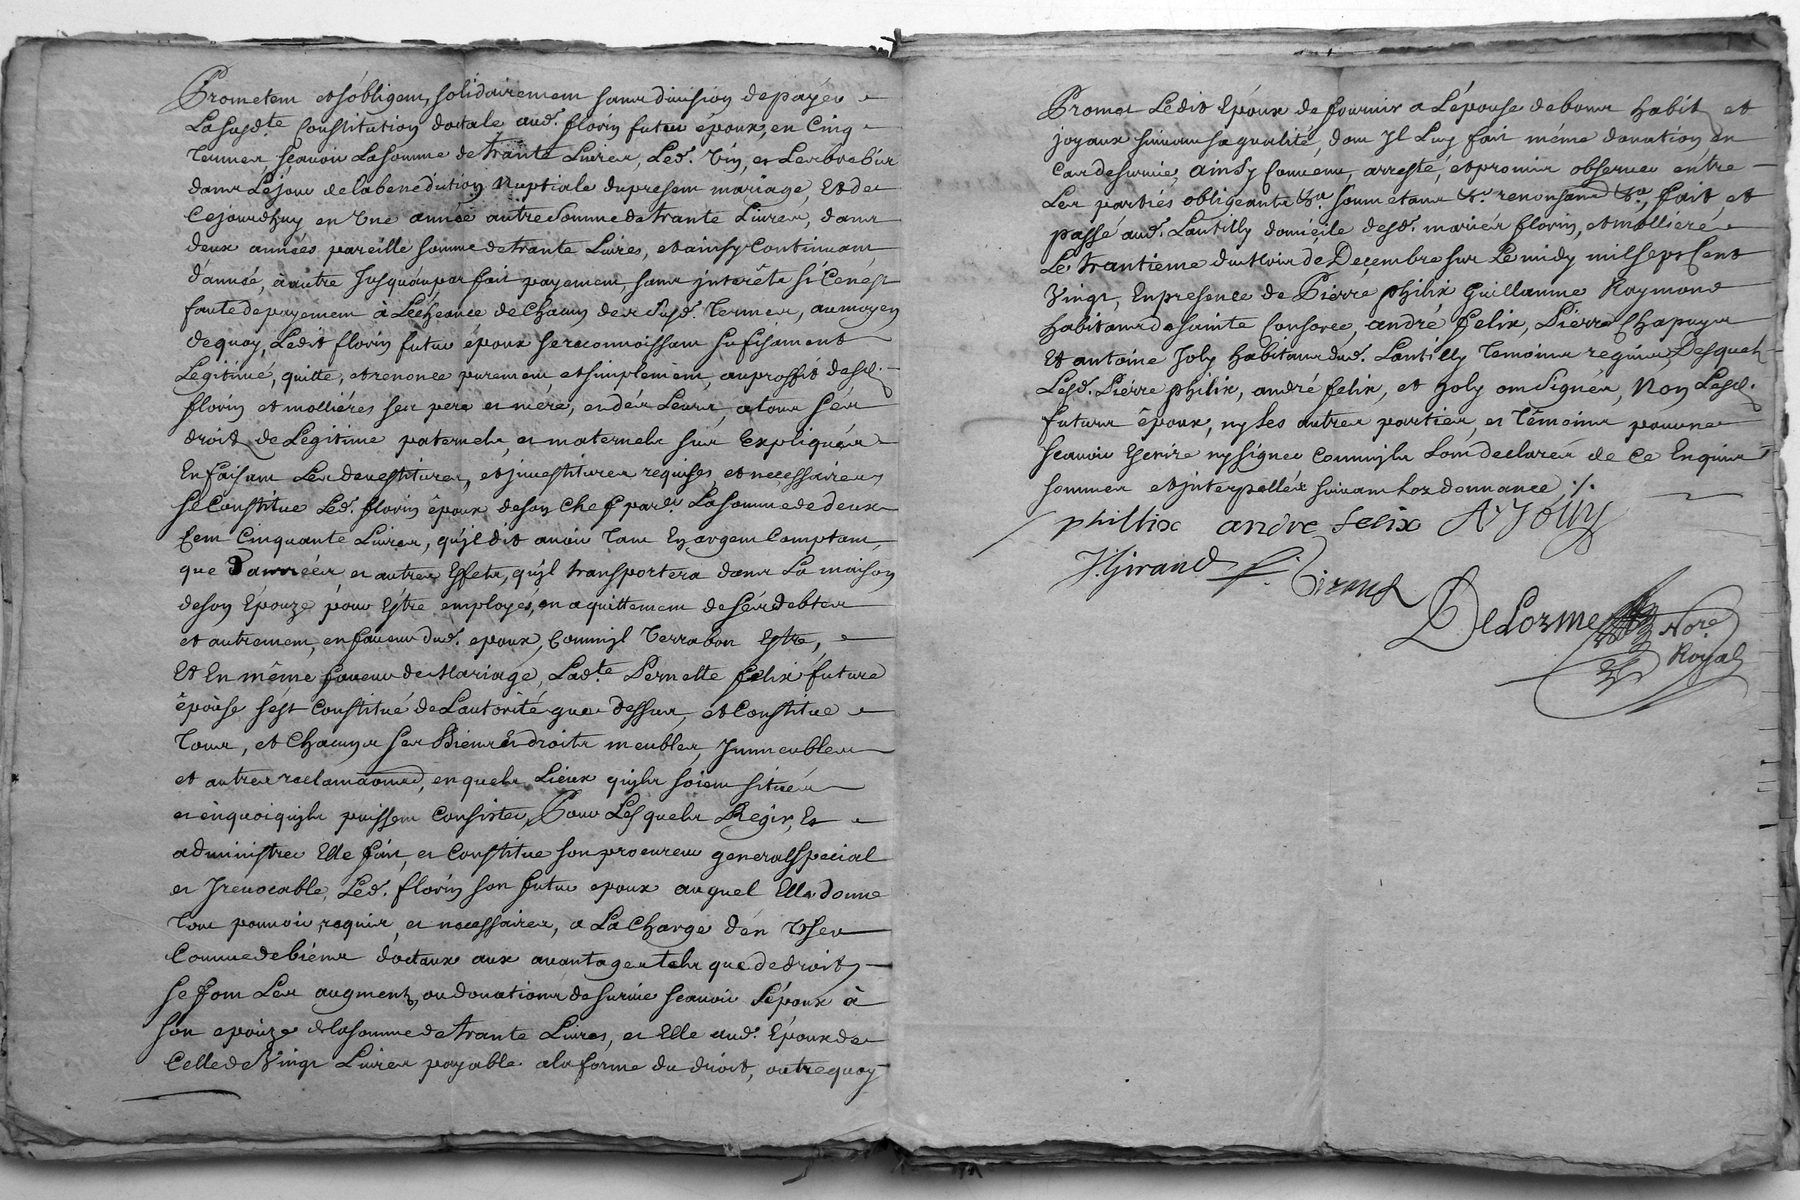 Prometem et s'obligem, solidairement sans division de payer
La susd.te Constitution dottale aud. florin futeur époux, en Cinq
Termes, scauoir La somme de trante Liures, Led. Vin, et Les brebis
dans Le jour de la benediction Nuptiale du present mariage, Et de
Cejourdhuy en Une année autre Somme de trante Liures, dans
deux années pareille somme de trante Liures, et ainsy Continuant
d'année, à autre Jusqu'au parfait payement sans jnterêts si Cen'est
faute de payement à L'écheance de Chacun des Susd. Termes, au moyen
de quoy, Ledit florin futeur époux se reconnoissant sufisament
Légitimé, quitte, et renonce purement, et simplement, au proffit desd.
florin et molliéres ses pere et mere, et des Leurs, a tous ses
droits de Légitime paternels, et maternels sus Expliqués
En faisant Les deuestitures, et jnuestitures requises, et necessaires
Se Constitue Led. florin époux de son Chef par La somme de deux
Cent Cinquante Liures, qu'jl dit auoir Tant En argent Comptant,
que Danrées et autres Effets, qu'jl transportera dans La maison
de son Epouze pour Estre employés, en aquittement de ses debtes
et autrement, en faueur dud. epoux, Comm'jl Verra bon Estre,
Et En même faueur de Mariage, Lad.te Pernette felix future
épouse s'est Constitué de L'autorité que dessus, et Constitue
Tous, et Chacuns ses Biens Et droits meubles, Jmmeubles
et autres reclamaons, en quels Lieux qu'jls soient situés
et en quoi qu'jls puissent Consister, Pour Lesquels Regir, Et
administrer Elle fait, et Constitue son procureur general special
et Jreuocable, Led. florin son futur epoux auquel Elle donne
Tout pouuoir requis, et necessaires, a La Charge d'en Vser
Comme de biens dottaux aux auantages tels que de droits
se font Les augments, ou donations de suruie scauoir L'époux à
son epouze de la somme de trante Liures, et Elle aud. Epoux de
Celle de Vingt Liures payable a la forme du droit, outre quoy
Promet Ledit Epoux de fournir a L'épouse de bons habits et
joyaux suiuant sa qualité, dont Jl Luy fait même donation en
Cas de suruie, ainsy Conuenu, arresté, et promis obseruer entre
Les parties obligeants &a. soumetans &a. renonsans &a., fait, et
passé aud. Lantilly domicile desd. mariés florin, et molliére
Le trantieme du Mois de Decembre sur Le midy mil sept Cent
Vingt, En presence de Pierre philix Guillaume Raymond
habitans de sainte Consorce, andré felix, Pierre Chapuys
Et antoine Joly habitans dud. Lantilly Temoins requis, Desquels
Lesd. Pierre philix, andré felix, et Joly ont Signés, Non Lesd.
futurs époux, ny Les autres parties, et Témoins pour ne
scauoir Escrire ny signer Comm'jls L'ont declarés de Ce Enquis
sommés et jnterpellés suiuant Lordonnance ./.
phillix andre felix A Jolly
J. Girand f. Girand
DeLorme Nore.
Royal